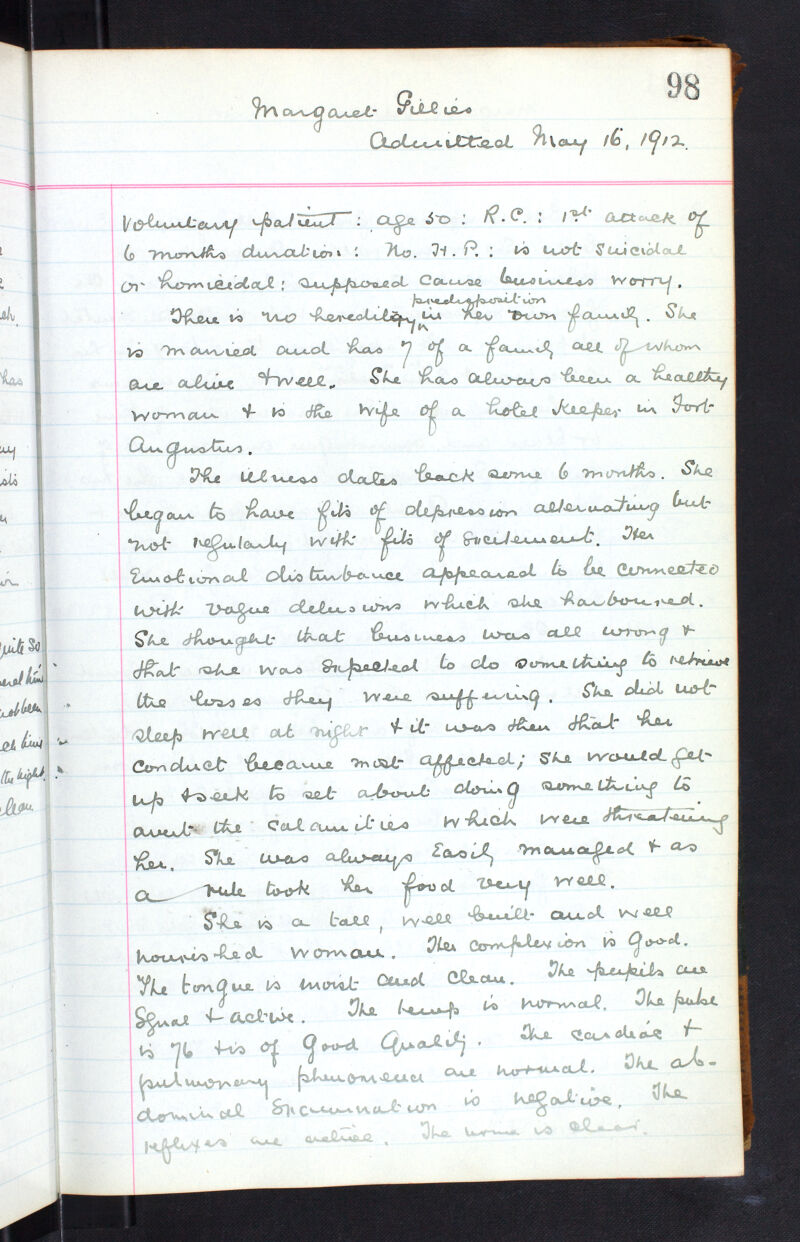 98
Margaret Gillies
Admitted May 16, 1912.
Voluntary patient: age 50: R.C.: 1st attack of
6 months duration: No. H.P.: is not suicidal
or homicidal: supposed cause business worry.
predisposition
There is no hereditary in her own family. She
is married and has 7 of a family all of whom
are alive & well. She has always been a healthy
woman & is the wife of a hotel keeper in Fort
Augustus.
The illness dates back some 6 months. She
began to have fits of depression alternating but
not regularly with fits of excitement. Her
Emotional disturbance appeared to be connected
with vague delusions which she harboured.
She thought that business was all wrong &
that she was expected to do something to retrieve
the losses they were suffering. She did not
sleep well at night & it was then that her
conduct became most affected; she would get
up & seek to set about doing something to
avert the calamities which were threatening
her. She was always Easily managed & as
a rule took her food very well.
She is a tall, well built and well
nourished woman. Her complexion is good.
The tongue is moist and clean. The pupils are
Equal & active. The temp is normal. The pulse
is 76 & is of Good Quality. The cardiac &
pulmonary phenomena are normal. The ab-
dominal Examination is negative. The
reflexes are active. The urine is clear.
has
quite so
the night.
clean